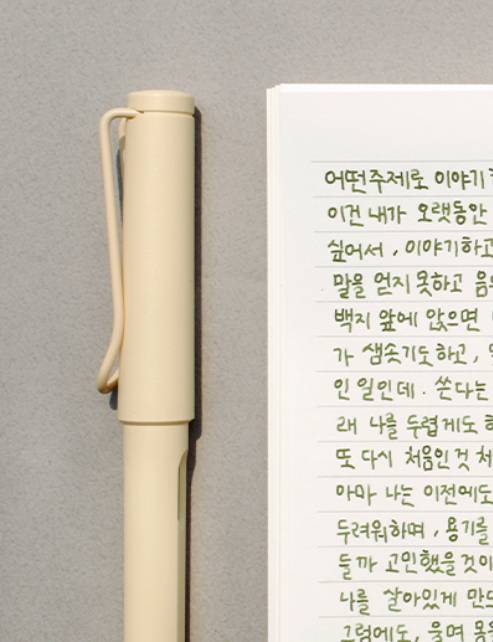 어떤 주제로 이야기
이건 내가 오랫동안
싶어서, 이야기하고
말을 얻지 못하고 음
백지 앞에 앉으면
가 샘솟기도 하고,
인 일인데. 쓴다는
래 나를 두렵게도
또 다시 처음인 것 처
아마 나는 이전에도
두려워하며, 용기를
둘까 고민했을 것이
나를 살아있게 만드
그럼에도, 울며 못